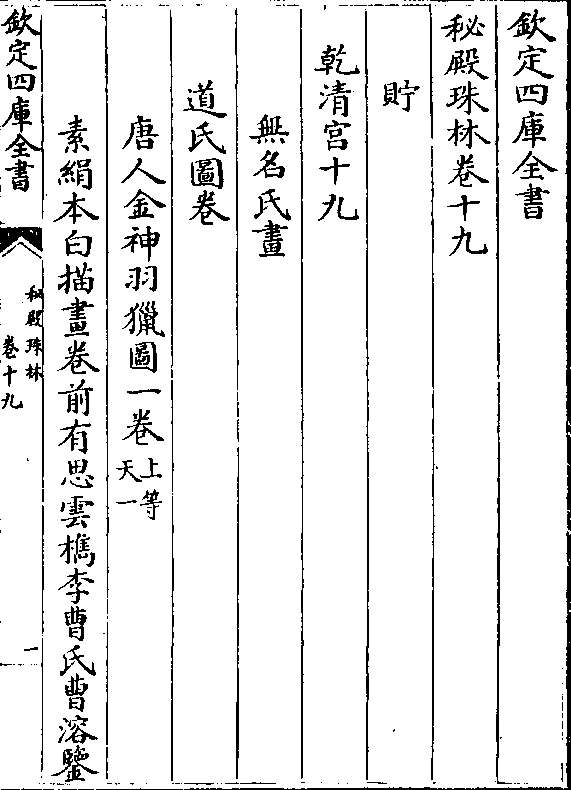 欽定四庫全書
秘殿珠林卷十九
貯
乾清宫十九
無名氏畫
道氏圖卷
唐人金神羽獵圖一卷上等天一
素絹本白描畫卷前有思雲檇李曹氏曹溶鑒
欽定四庫全書
秘殿珠林
卷十九
一